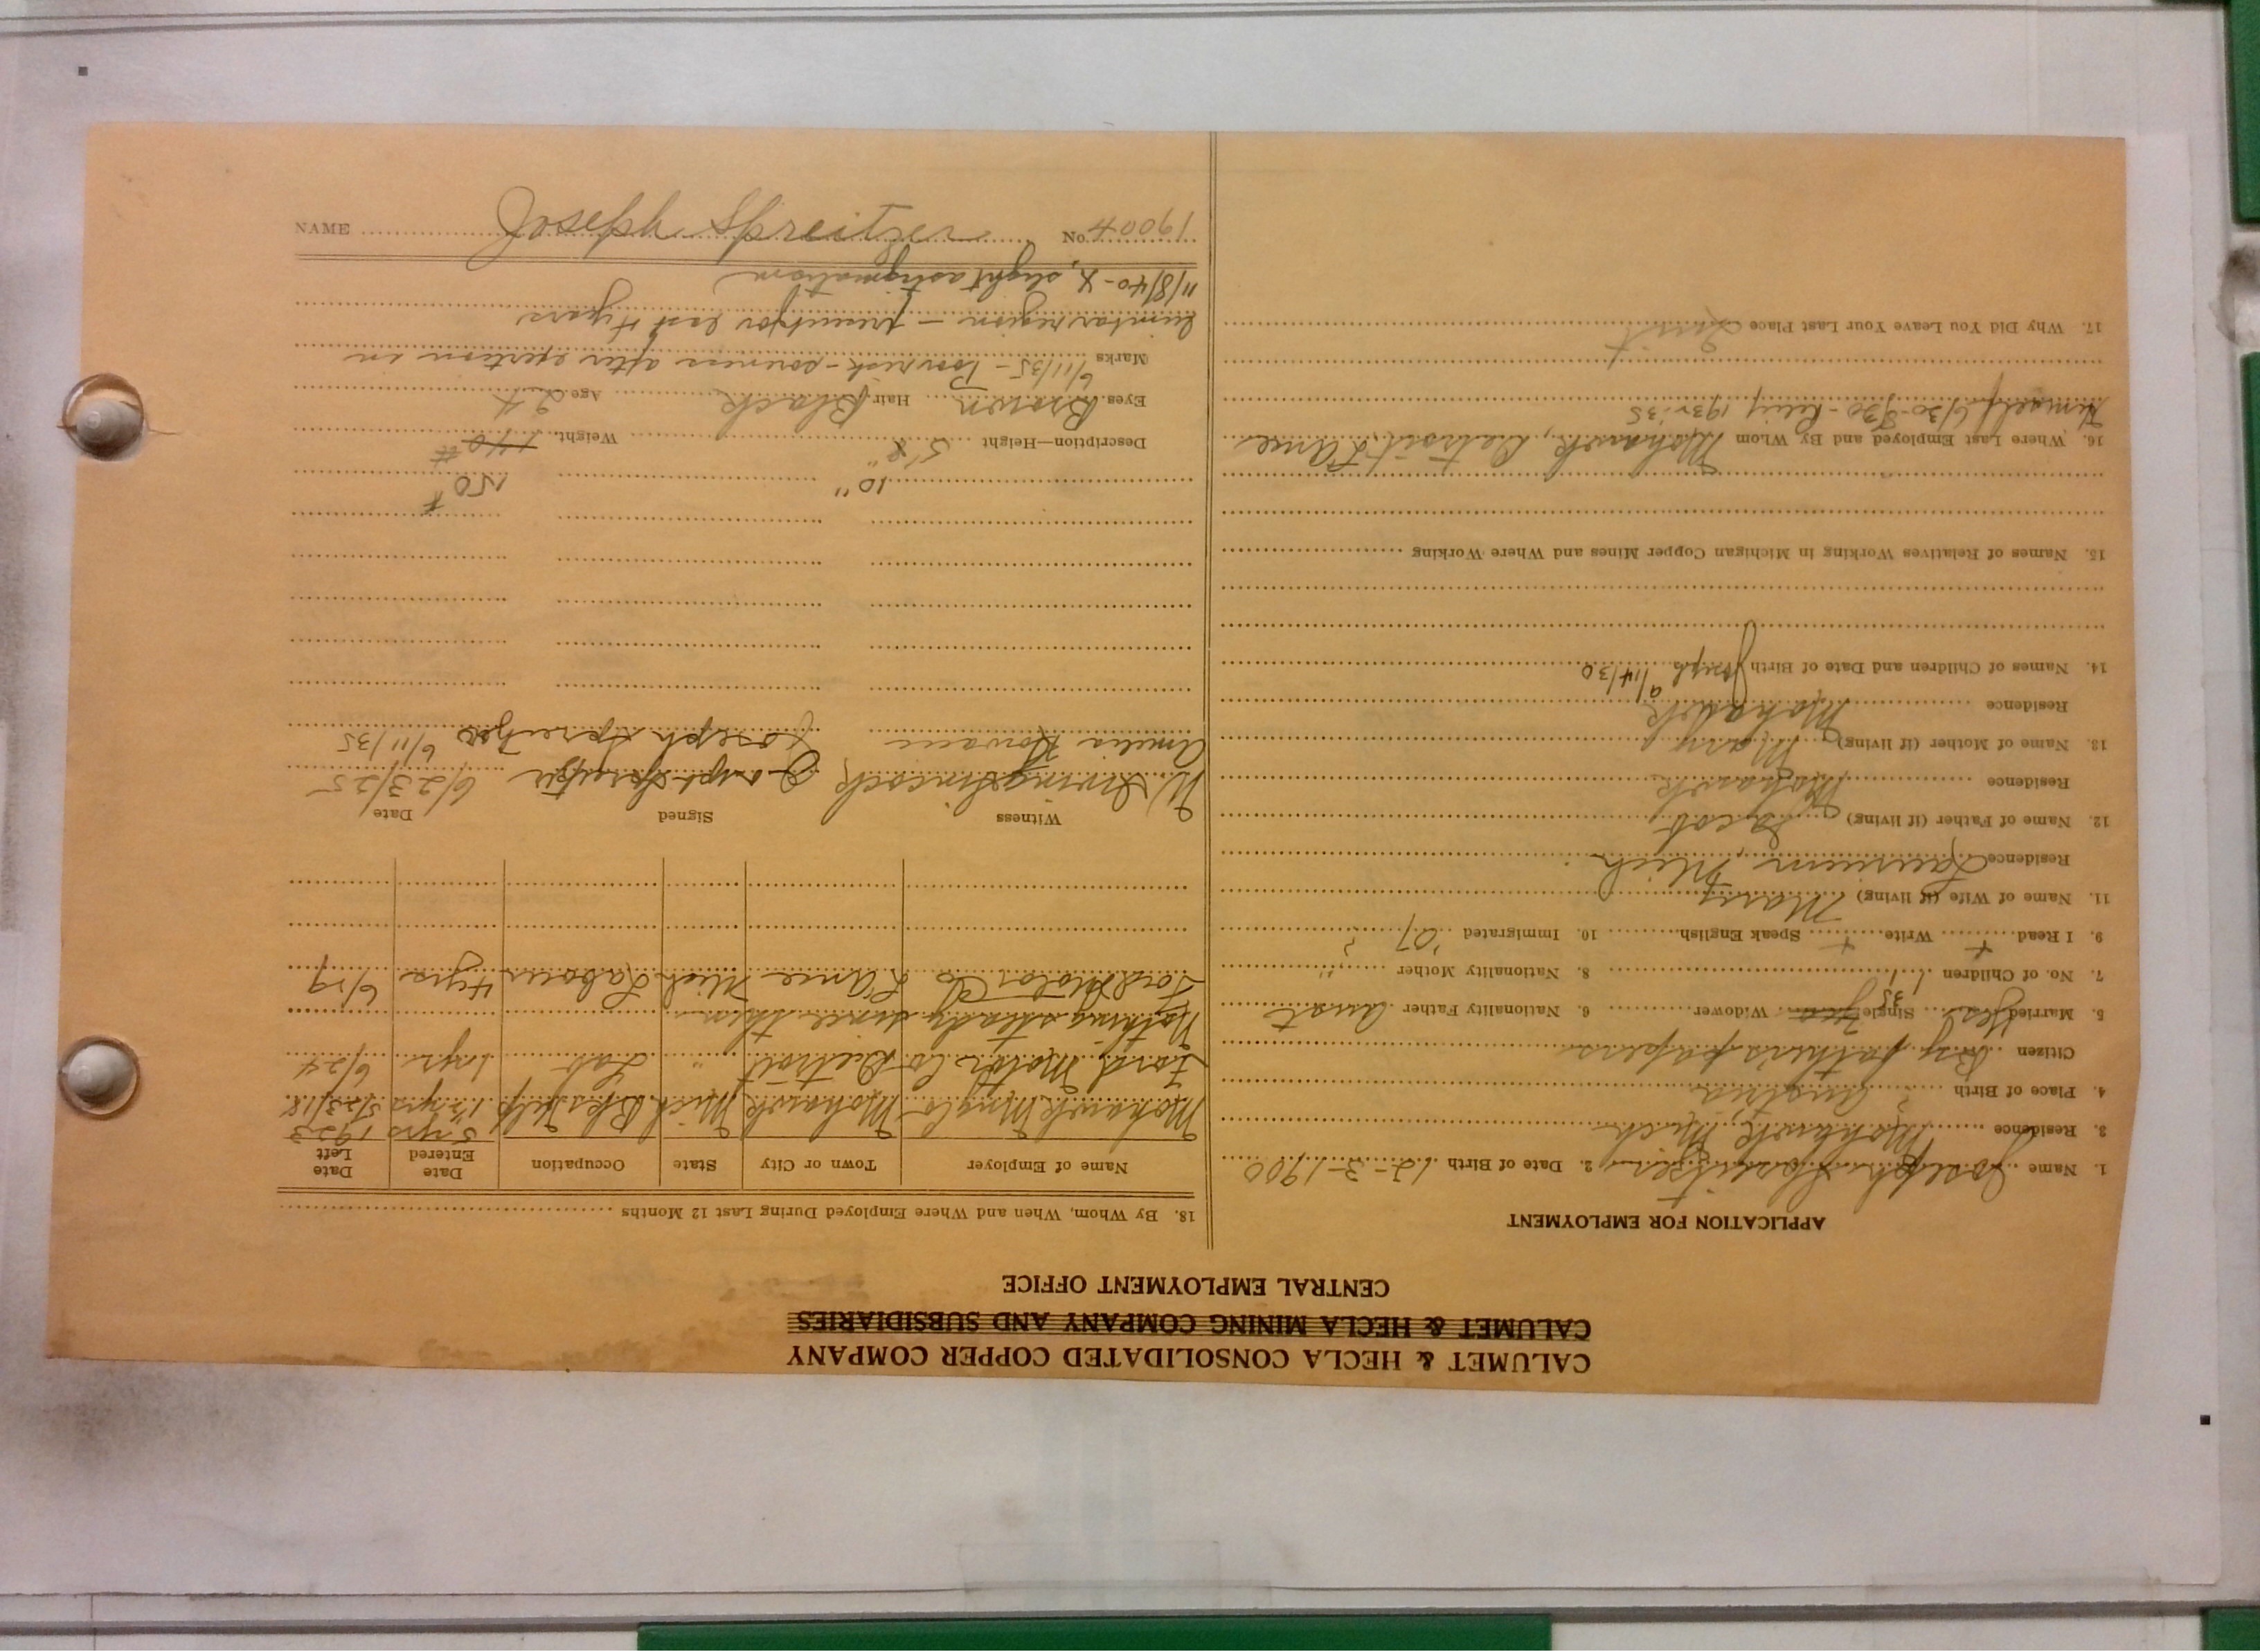 CALUMET & HECLA CONSOLIDATED COPPER COMPANY
CALUMET & HECLA MINING COMPANY AND SUBSIDIARIES
CENTRAL EMPLOYMENT OFFICE
APPLICATION FOR EMPLOYMENT
1. Name Joseph Spreitzer 2. Date of Birth 12-3-1900
3. Residence Mohawk, Mich
4. Place of Birth Austria
Citizen By father's papers
5. Married Yes 35 Single Yes Widower 6. Nationality Father Aust
7. No. of Children 1 8. Nationality Mother "
9. I Read + Write + Speak English 10. Immigrated '07 ?
11. Name of Wife (if living) Mary
Residence Laurium, Mich
12. Name of Father (if living) Jacob
Residence Mohawk
13. Name of Mother (if living) Mary
Residence Mohawk
14. Names of Children and Date of Birth Joseph 9/14/30
15. Names of Relatives Working in Michigan Copper Mines and Where Working
16. Where Last Employed and By Whom Mohawk, Detroit, L'Anse
Himself 6/30-8/30 - Relief 193 -35
17. Why Did You Leave Your Last Place Quit
18. By Whom, When and Where Employed During Last 12 Months
Name of Employer Town or City State Occupation Date Entered Date Left
5 yrs 1923
Mohawk Mng Co Mohawk Mich Blks Help 1 1/2 yrs 5/23/18
Ford Motor Co Detroit " Lab 1 yr 6/24
Nothing steady since then
Ford Motor Co L'Anse Mich Labour 4 yrs 6/29
Witness Signed Date
W. Irving Hincock Joseph Spreitzer 6/23/25
Amelia Kovacic Joseph Spreitzer 6/11/35
10" 150 #
Description—Height 5'8" Weight 140 #
Eyes Brown Hair Black Age 24
Marks 6/11/35 - Poor risk - soreness after exertion in
lumbar region - present for last 4 years
11/8/40 - X, slight astigmatism
No. 19004
NAME Joseph Spreitzer